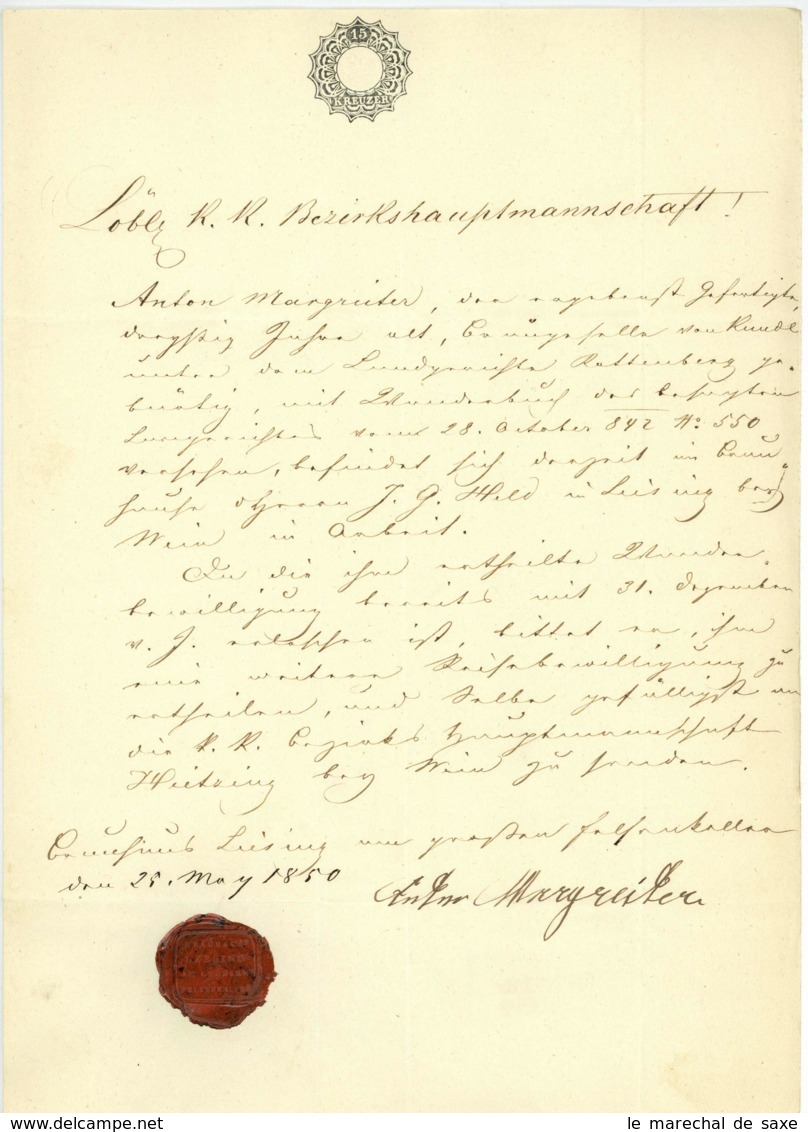 15
KREUZER
Löbl. K. K. Bezirkshauptmannschaft!
Anton Margreiter, der ergebenst Gefertigte,
dreyßig Jahre alt, Bräugeselle von Kundl
unter dem Landgerichte Rattenberg ge-
bürtig, mit Wanderbuch des besagten
Landgerichtes vom 28. October 842 No. 550
versehen, befindet sich derzeit im Bräu-
hause d Herrn J. G. Held in Liesing bey
Wien in Arbeit.
Da die ihm ertheilte Wander-
bewilligung bereits mit 31. Dezember
v. J. erloschen ist, bittet er, ihm
eine weitere Reisebewilligung zu
ertheilen, und Selbe gefälligst an
die k. k. Bezirks Hauptmannschaft
Hietzing bey Wien zu senden.
Bräuhaus Liesing am großen Felsenkeller
den 25. May 1850
Anton Margreiter
le marechal de saxe